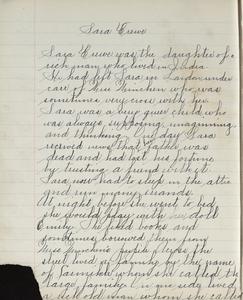 Sara Crewe
Sara Crewe was the daughter of a
rich man who lived in India
He had left Sara in London under
care of Miss Minchin who was
sometimes very cross with her.
Sara was a very queer child, who
was always supposing, imagining,
and thinking. One day Sara
received news that father was
dead and had lost his fortune
by trusting a friend with it
Sara now had to sleep in the attic
and run many errands.
At night, before she went to bed,
she would play with her doll
Emily. She liked books and
sometimes borrowed them from
Miss Minchin's pupils. Across the
street lived a family by the name
of whom she called the
large family. On one side lived
a old man whom she called